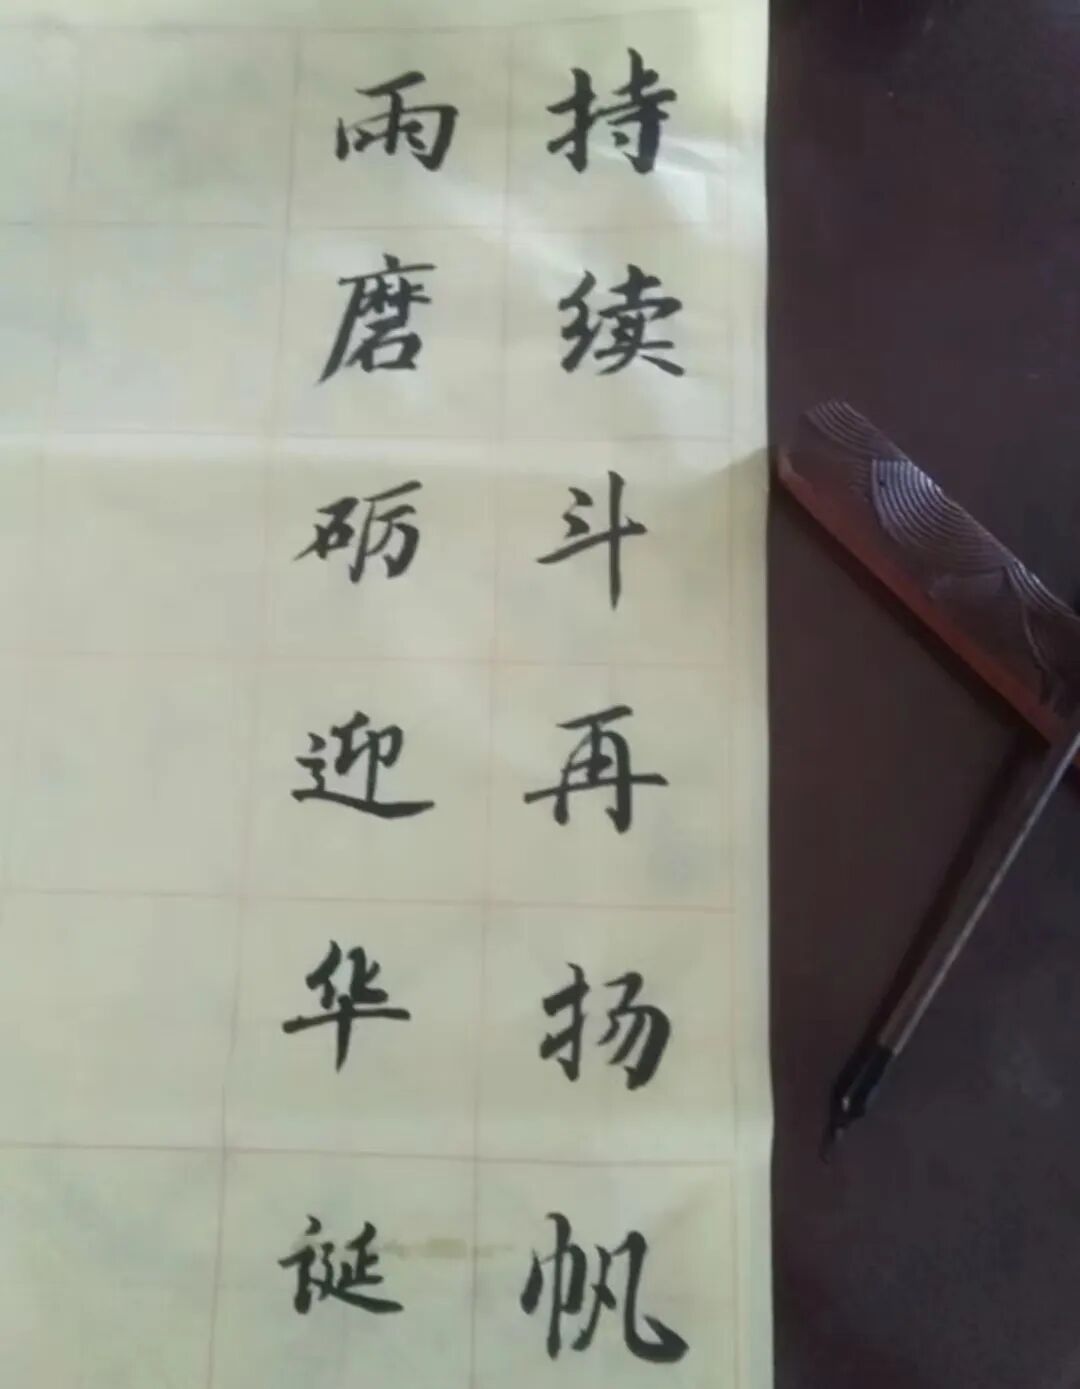 持续斗再扬帆
雨磨砺迎华诞